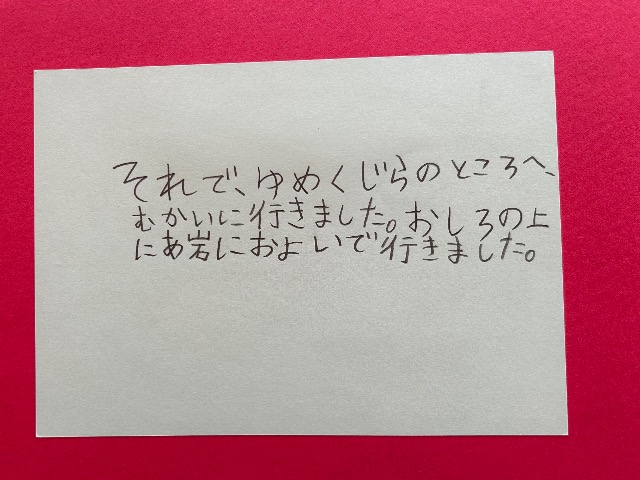 それで、ゆめくじらのところへ、
むかいに行きました。おしろの上
にあ岩におよいで行きました。